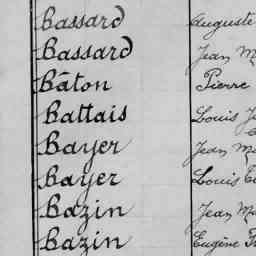 Bassard Auguste
Bassard Jean M
Bâton Pierre
Battais Louis J
Bayer Jean Ma
Bayer Louis
Bazin Jean Ma
Bazin Eugène F